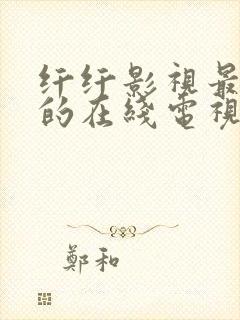 纤纤影視最
的在綫電視
鄭和